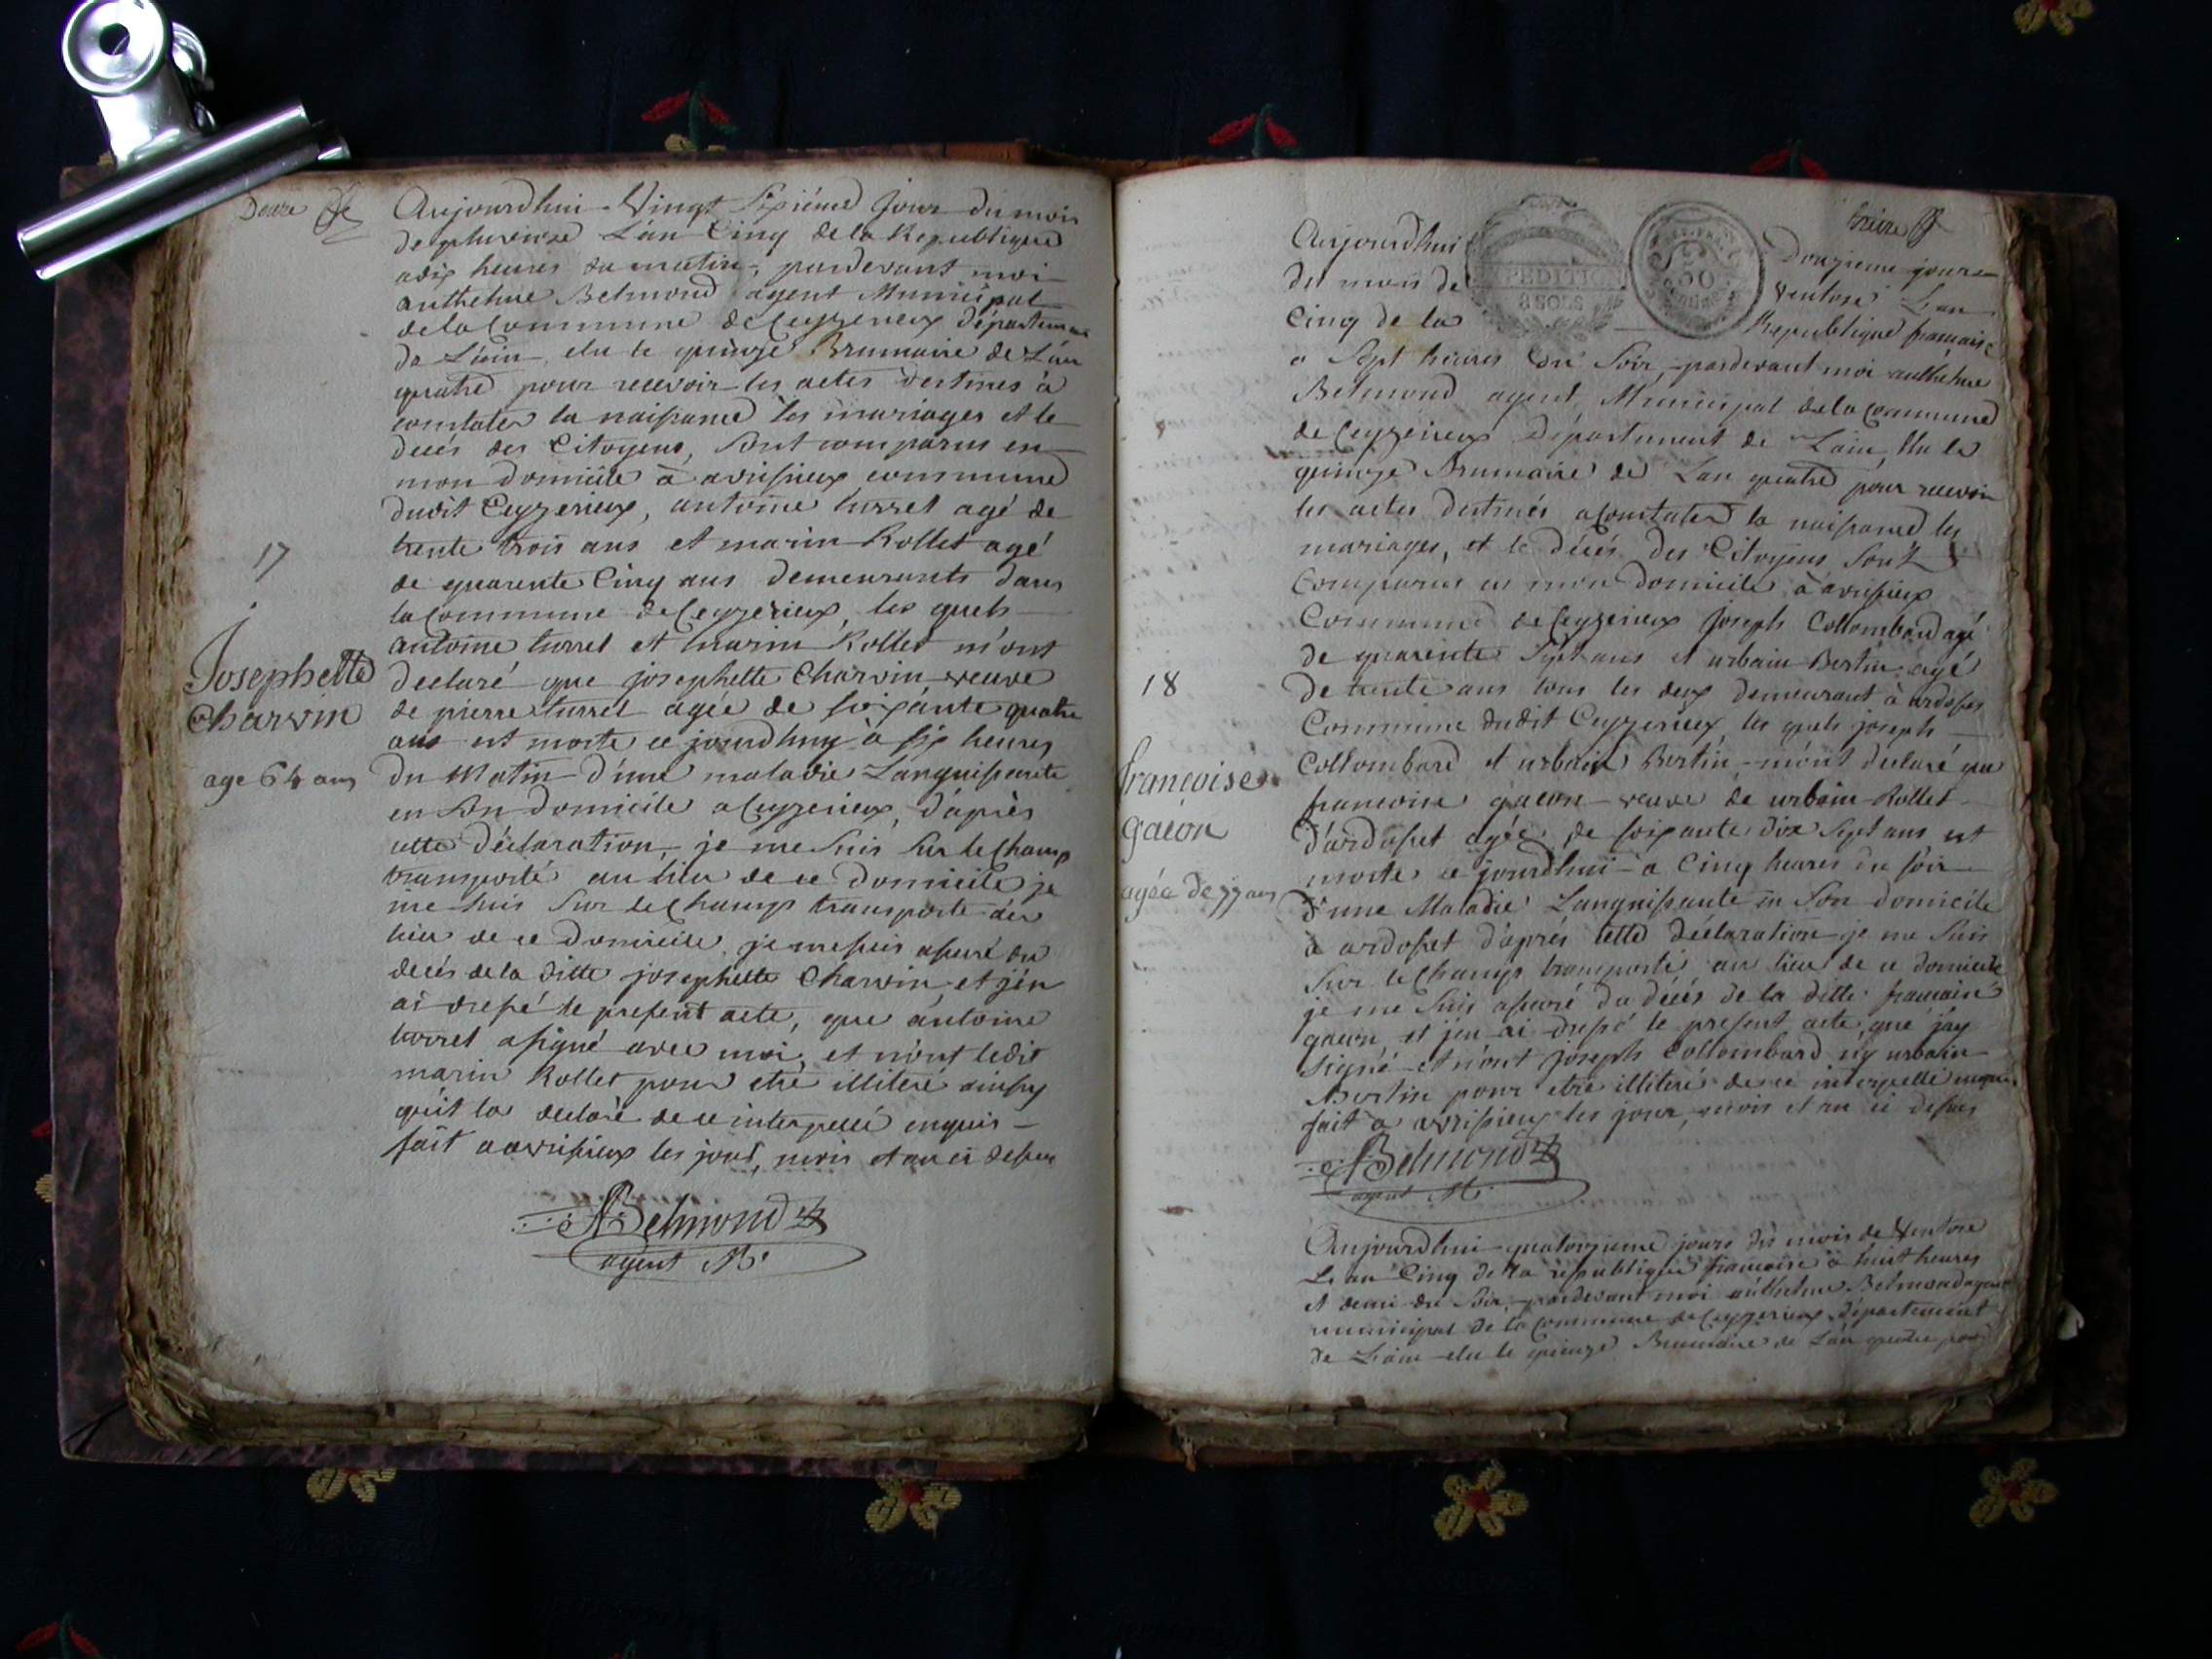 Douze
Aujourdhui Vingt Sixiéme Jour du mois
de pluviose L'an Cinq de la Republique
adix heures du matin, pardevant moi
anthelme Belmond agent Municipal
de la Commune de Ceyzerieux département
de L'ain, elu le quinze Brumaire de L'an
quatre pour recevoir les actes destinés à
constater la naissance les mariages et le
decés des Citoyens, sont comparus en
mon domicile à avrissieux commune
dudit Ceyzerieux, antoine turrel agé de
trente trois ans et marin Rollet agé
de quarente Cinq ans demeurants dans
la Commune de Ceyzerieux, les quels
antoine turrel et marin Rollet m'ont
declaré que josephette Charvin veuve
de pierre turrel agée de soixante quatre
ans est morte ce jourdhuy à six heures
du Matin d'une maladie Languissante
en son domicile a Ceyzerieux, d'après
cette déclaration, je me suis sur le Champ
transporté au lieu de ce domicile je
me suis sur le Champ transporté au
lieu de ce domicile, je me suis assuré du
decés de la ditte josephette Charvin, et j'én
ai dressé le present acte, que antoine
turrel a signé avec moi, et n'ont ledit
marin Rollet pour etre illiteré ainsy
qu'it la declaré de ce interpellé enquis
fait a avrissieux les jour, mois et an ci dessus
17
Josephette
Charvin
age 64 ans
ABelmond
agent M.
treize
Aujourdhui Douzieme jour
du mois de Ventose L'an
Cinq de la Republique francaise
EXPEDITION
8 SOLS
50
a Sept heures du Soir, pardevant moi anthelme
Belmond agent Municipal de la Commune
de Ceyzerieux Département de L'ain, élu le
quinze Brumaire de L'an quatre pour recevoir
les actes destinés a Constater la naissance les
mariages, et le décés des Citoyens sont
Comparus en mon domicile à avrissieux
Commune de Ceyzerieux Joseph Collombard agé
de quarente Sept ans et urbain Bertin agé
de trente ans tous les deux demeurant à ardosset
Commune dudit Ceyzerieux, les quels joseph
Collombard et urbain Bertin m'ont declaré que
francoise gacon veuve de urbain Rollet
d'ardosset agée de soixante dix Sept ans est
morte ce jourdhui a Cinq heures du soir
d'une Maladie Languissante en Son domicile
à ardosset d'apres cette déclaration je me Suis
sur le Champ transporté au lieu de ce domicile
je me Suis assuré du décés de la ditte francoise
gacon et j'en ai dressé le present acte, que j'ay
signé et n'ont joseph Collombard n'y urbain
Bertin pour etre illiterés de ce interpellé enquis
fait à avrissieux les jour, mois et an ci dessus
18
françoise
gacon
agée de 77 ans
ABelmond
agent M.
Aujourdhui quatorzieme jours du mois de Ventose
L'an Cinq de la republique francoise à huit heures
et demi du Soir, pardevant moi anthelme Belmond agent
municipal de la Commune de Ceyzerieux, département
de L'ain elu le quinze Brumaire de L'an quatre pour